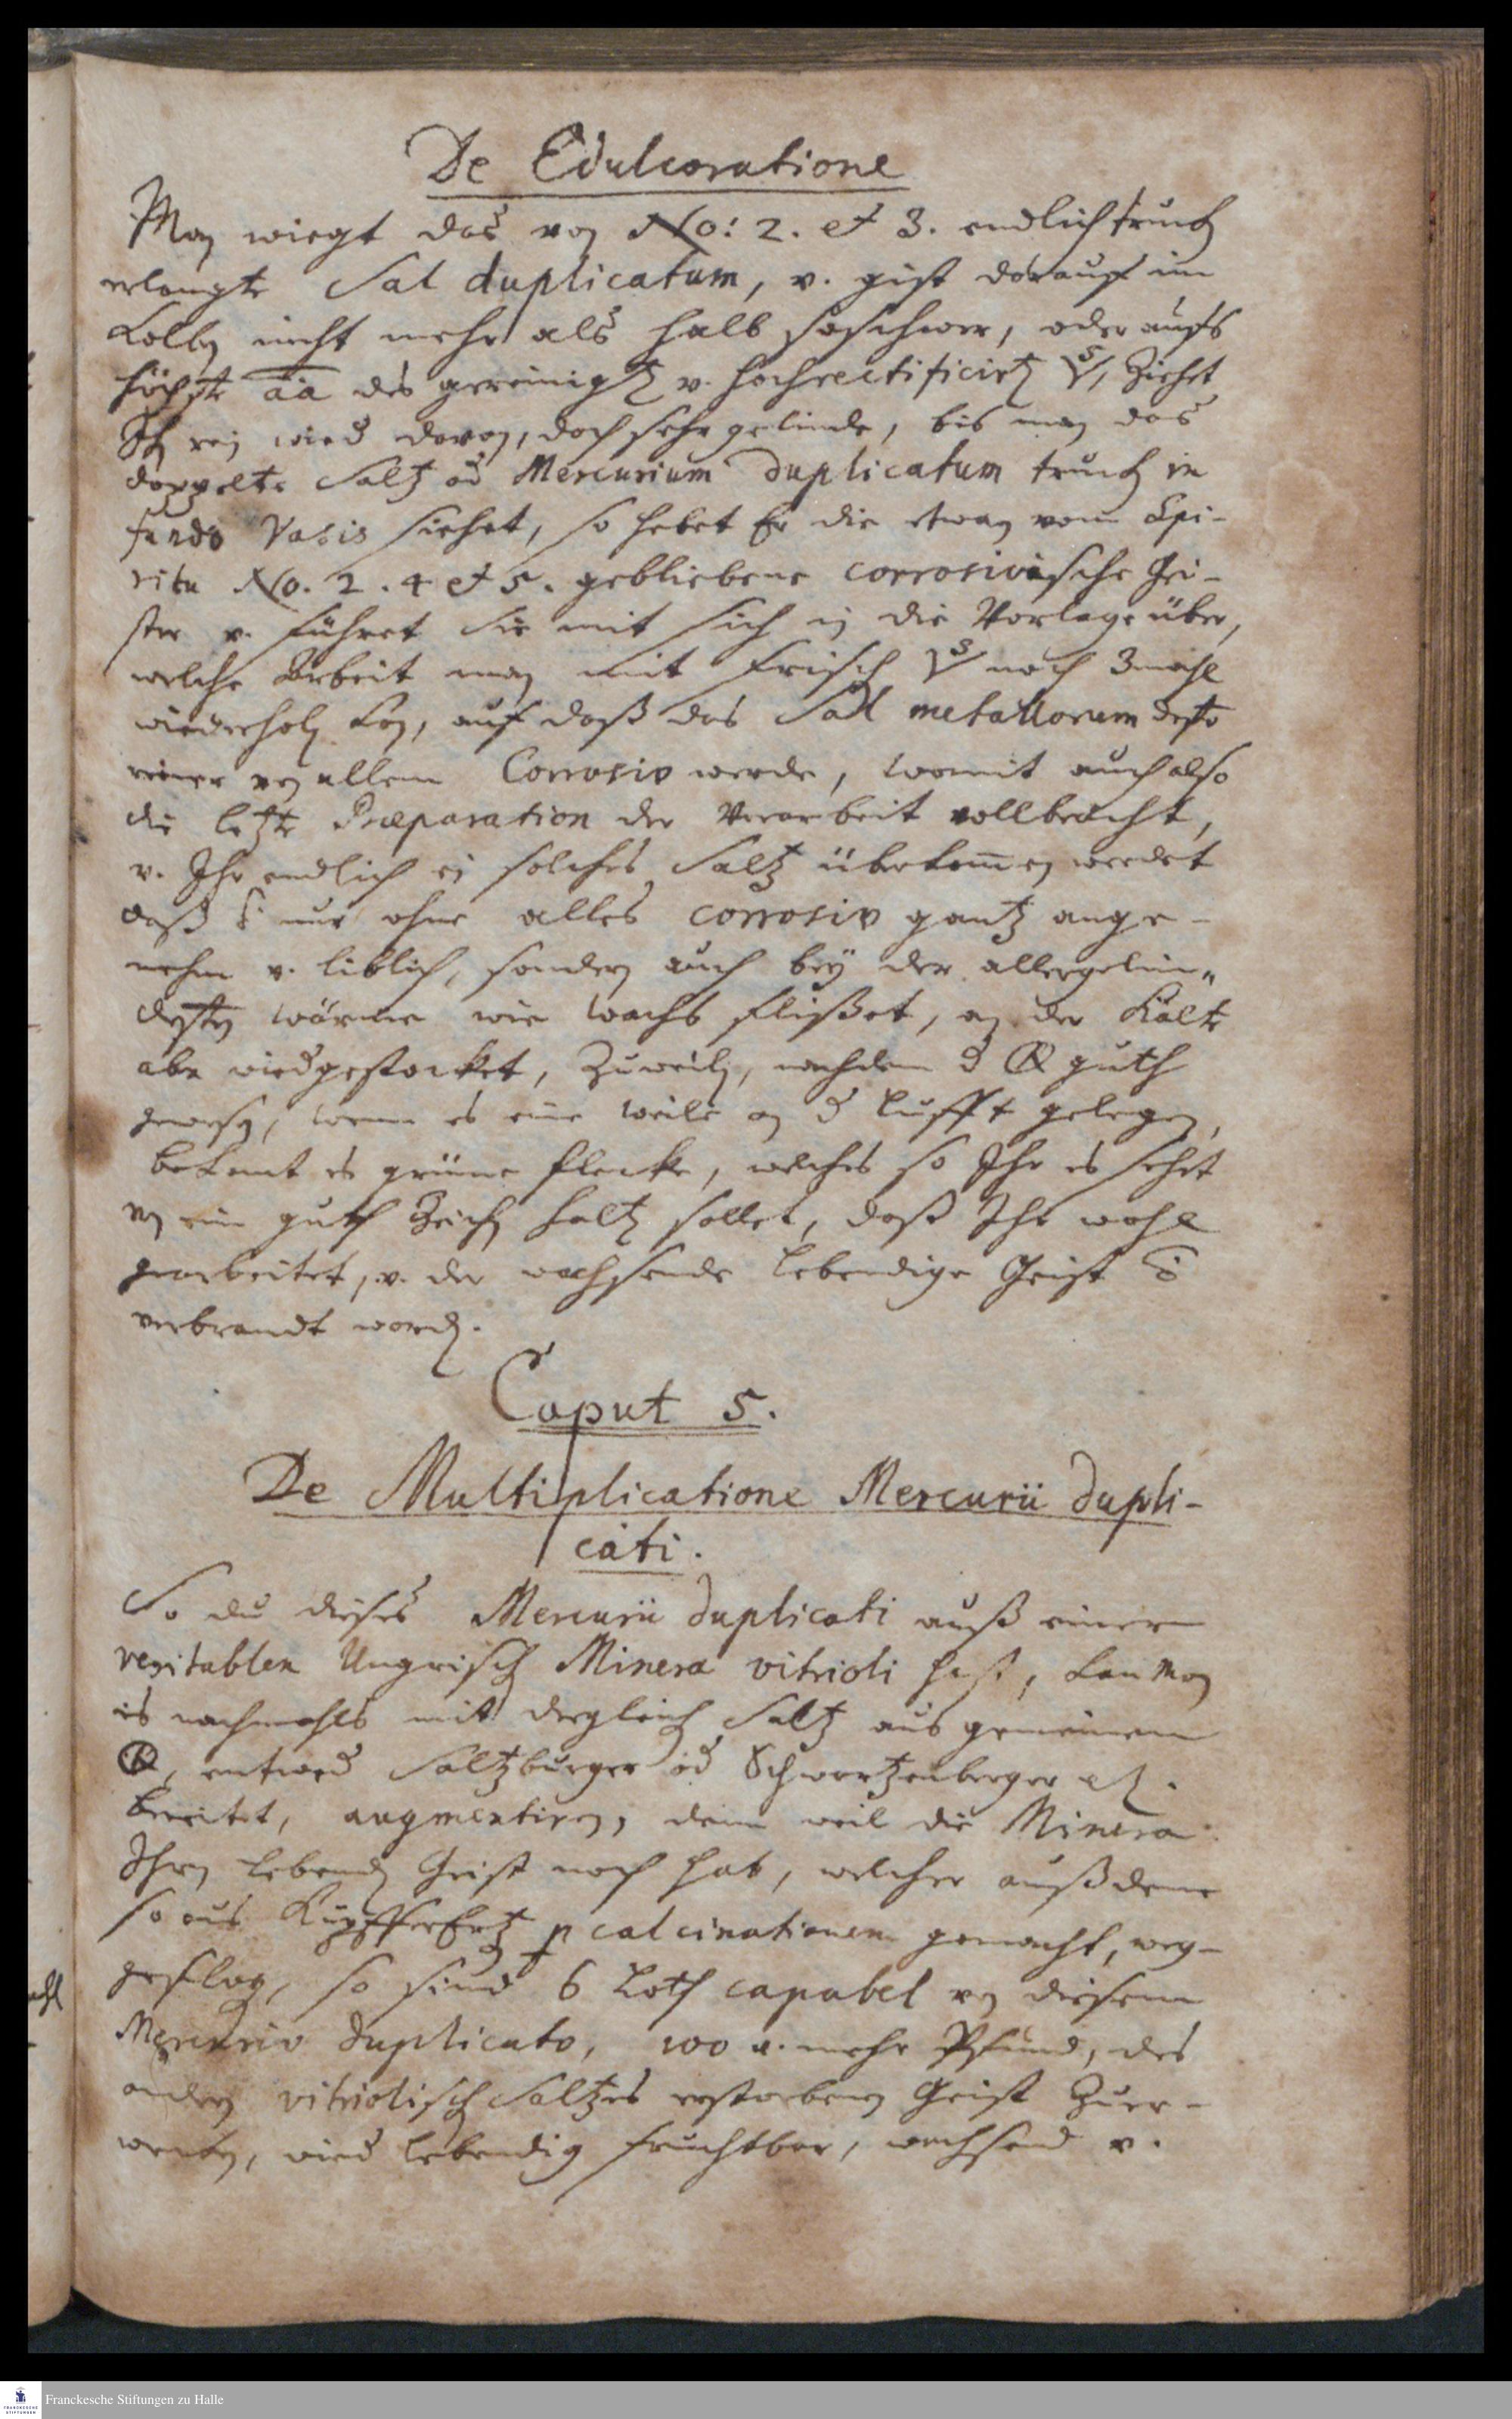 De Edulcoratione
Man wiegt das von No: 2. et 3. endlich truck
erlangte Sal duplicatum, v. gist darauff im
Kolben nicht mehr als halb so schwer, oder aufs
höchste āā des gereinigten v. hochrectificirten, Ziehet
wied davon, doch sehr gelinde, bis man das
doppelte Saltz od Mercurium duplicatum trucken in
fundo Vasis siehet, so hebet Er die etwan vom Spi-
ritu No. 2. 4 et 5. gebliebene corrosivische Gei-
ster v. führet Sie mit sich in die Vorlage über,
welche Arbeit man mit frisch noch 3mahl
wiederholen kan, auf daß das Sal metallorum desto
reiner von allem Corrosiv werde, womit auch also
die letzte Præparation der Vorarbeit vollbracht,
v. Ihr endlich ein solches Saltz überkommen werdet
daß nur ohne alles corrosiv gantz ange-
nehm v. liblich, sondern auch bey der allergelin-
desten wärme wie Wachs flißet, an der Kälte
aber wied gestocket, Zuweilen, nachdem d guth
gewesen, wenn es eine Weile an d Lufft gelegen,
bekomt es grüne flecke, welches so Ihr es sehet
vor ein guth Zeichen halten sollet, daß Ihr wohl
gearbeitet, v. der wachsende lebendige Geist
verbrandt worden.
Caput 5.
De Multiplicatione Mercurii dupli-
cati.
So du dieses Mercurii duplicati auß einer
veritablen Ungrischen Minera vitrioli hast, kan man
es nachmahls mit dergleichen Saltz aus gemeinem
entwed Saltzburger od Schwartzenberger etc.
bereitet, augmentiren, denn weil die Minera
Ihren lebenden Geist noch hat, welcher auß deme
so aus KupfferErtz p calcinationem gemacht, weg-
geflogen, so sind 6 Loth capabel von diesem
Mercurio duplicato, 100 v. mehr Pfund, des
andern vitriolischen Saltzes erstorbenen Geist Zuer-
wecken, wied lebendig fruchtbar, wachsend v.
Franckesche Stiftungen zu Halle